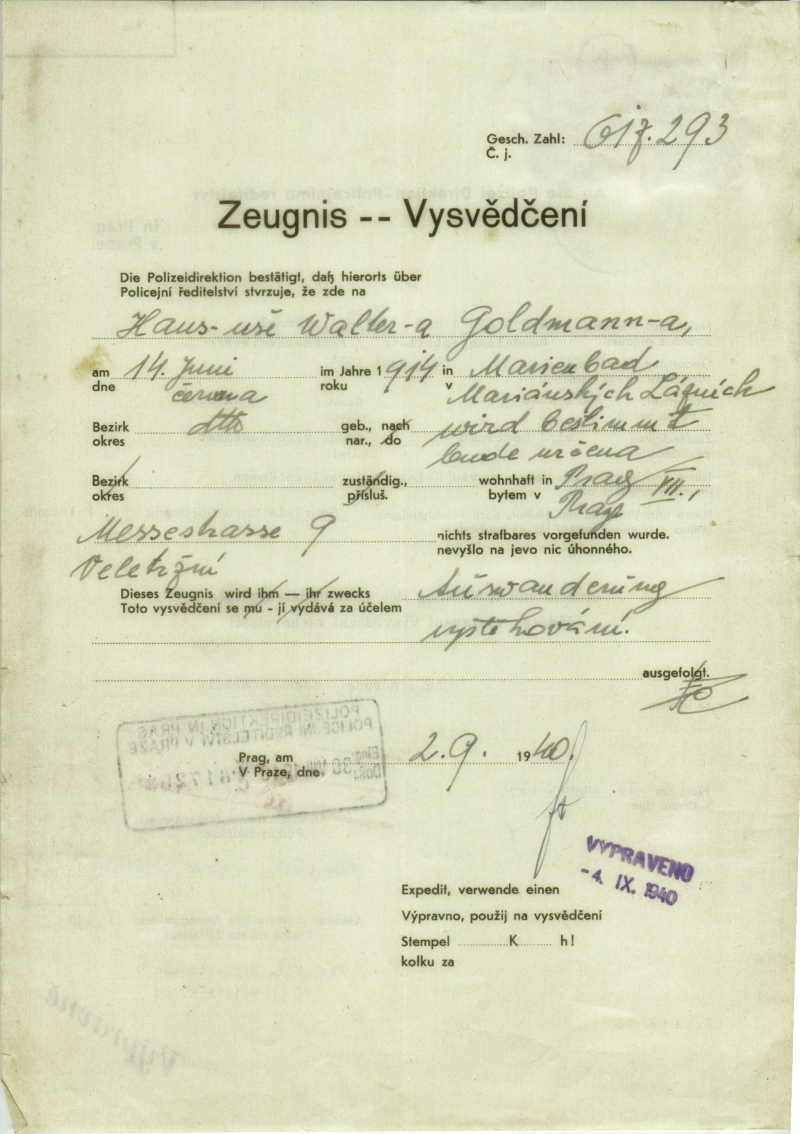 Gesch. Zahl: 617.293
Č. j.
Zeugnis -- Vysvědčení
Die Polizeidirektion bestätigt, daß hierorts über
Policejní ředitelství stvrzuje, že zde na
Hans- Walter-a Goldmann-a,
am 14. Juni im Jahre 1914 in Marienbad
dne června roku v Mariánských Lázních
Bezirk dtto geb., nach wird bestimmt
okres nar., do bude určena
Bezirk zuständig., wohnhaft in Prag VII.,
okres přísluš. bytem v Praze
Messestrasse 9 nichts strafbares vorgefunden wurde.
Veletržní nevyšlo na jevo nic úhonného.
Dieses Zeugnis wird ihm — ihr zwecks Auswanderung
Toto vysvědčení se mu - jí vydává za účelem vystěhování.
ausgefolgt.
POLIZEIDIREKTION IN PRAG
POLICEJNÍ ŘEDITELSTVÍ V PRAZE
Prag, am 2.9. 1940
V Praze, dne
VYPRAVENO
-4. IX. 1940
Expedit, verwende einen
Výpravno, použij na vysvědčení
Stempel K h!
kolku za